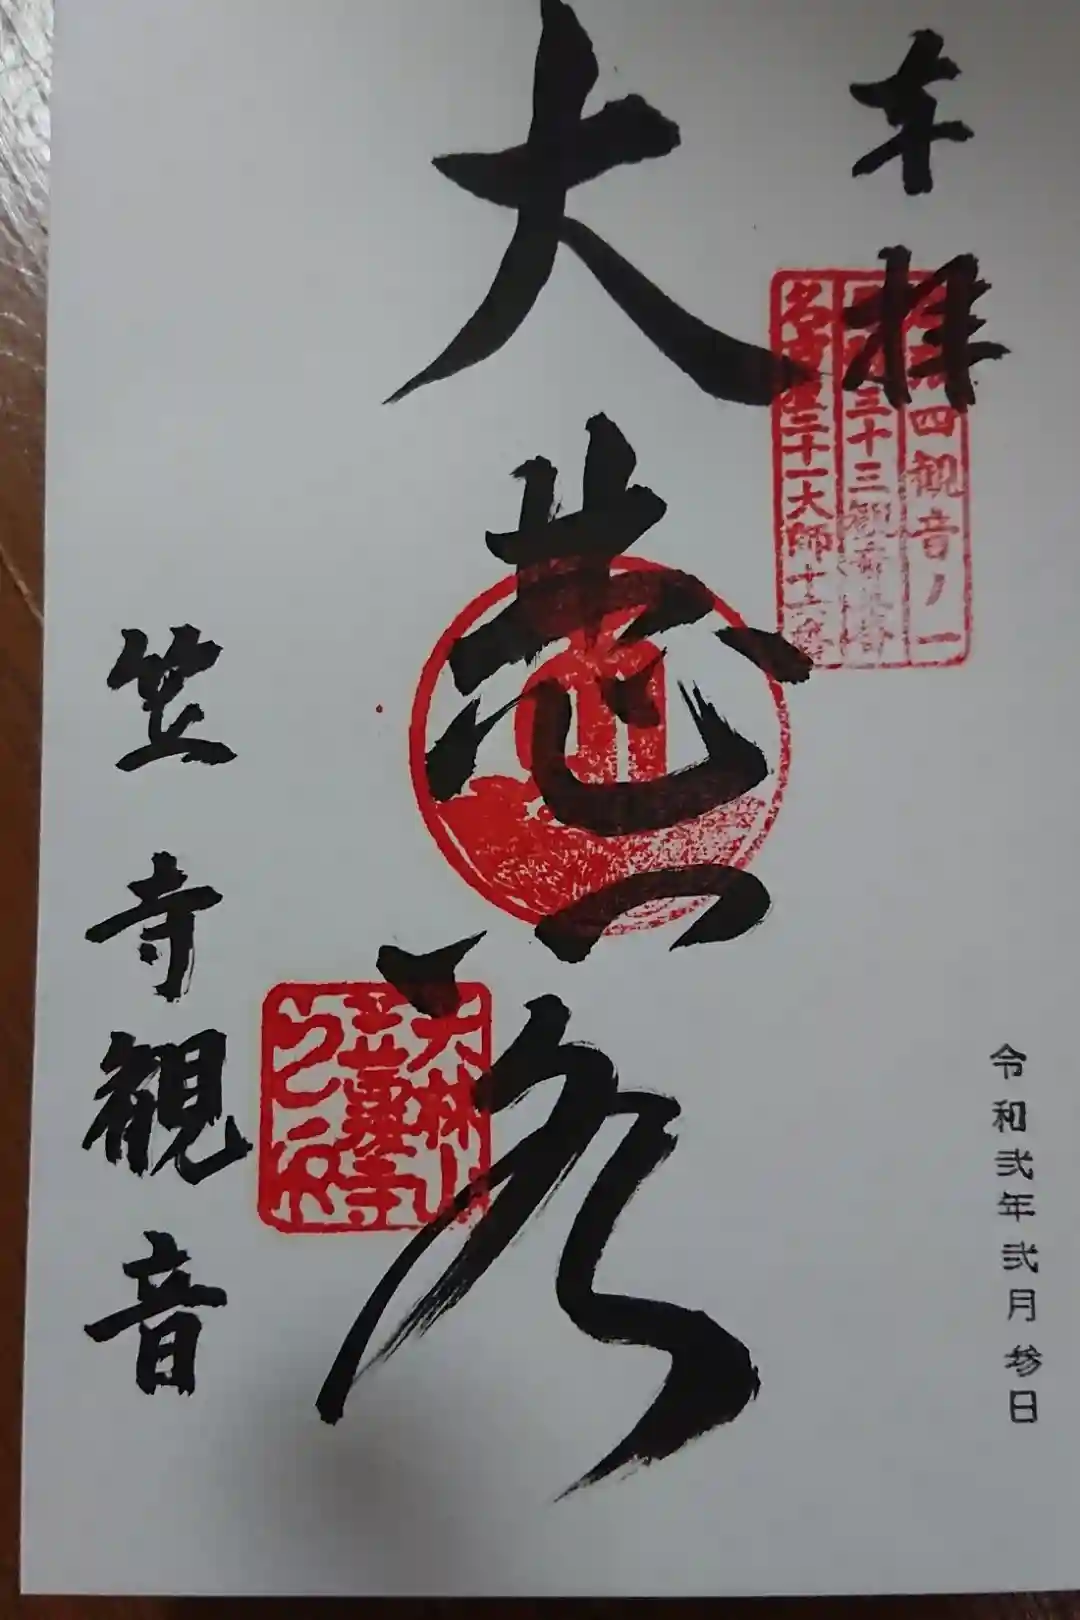 奉拝
四観音ノ一
三十三観音
名古屋二十一大師十二番
令和弐年弐月参日
大悲
大林山
笠覆寺
笠寺観音